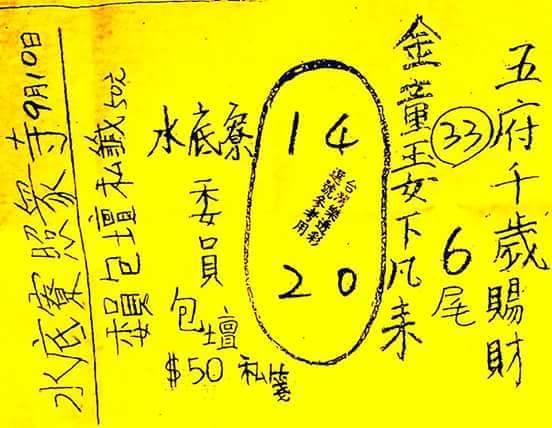 五府千歲賜財
33
6尾
金童玉女下凡來
14
台灣樂透彩
選號參考用
20
水底寮
委員
包壇
$50 私籤
委員包壇私籤50元
水底寮照眾寺9月10日